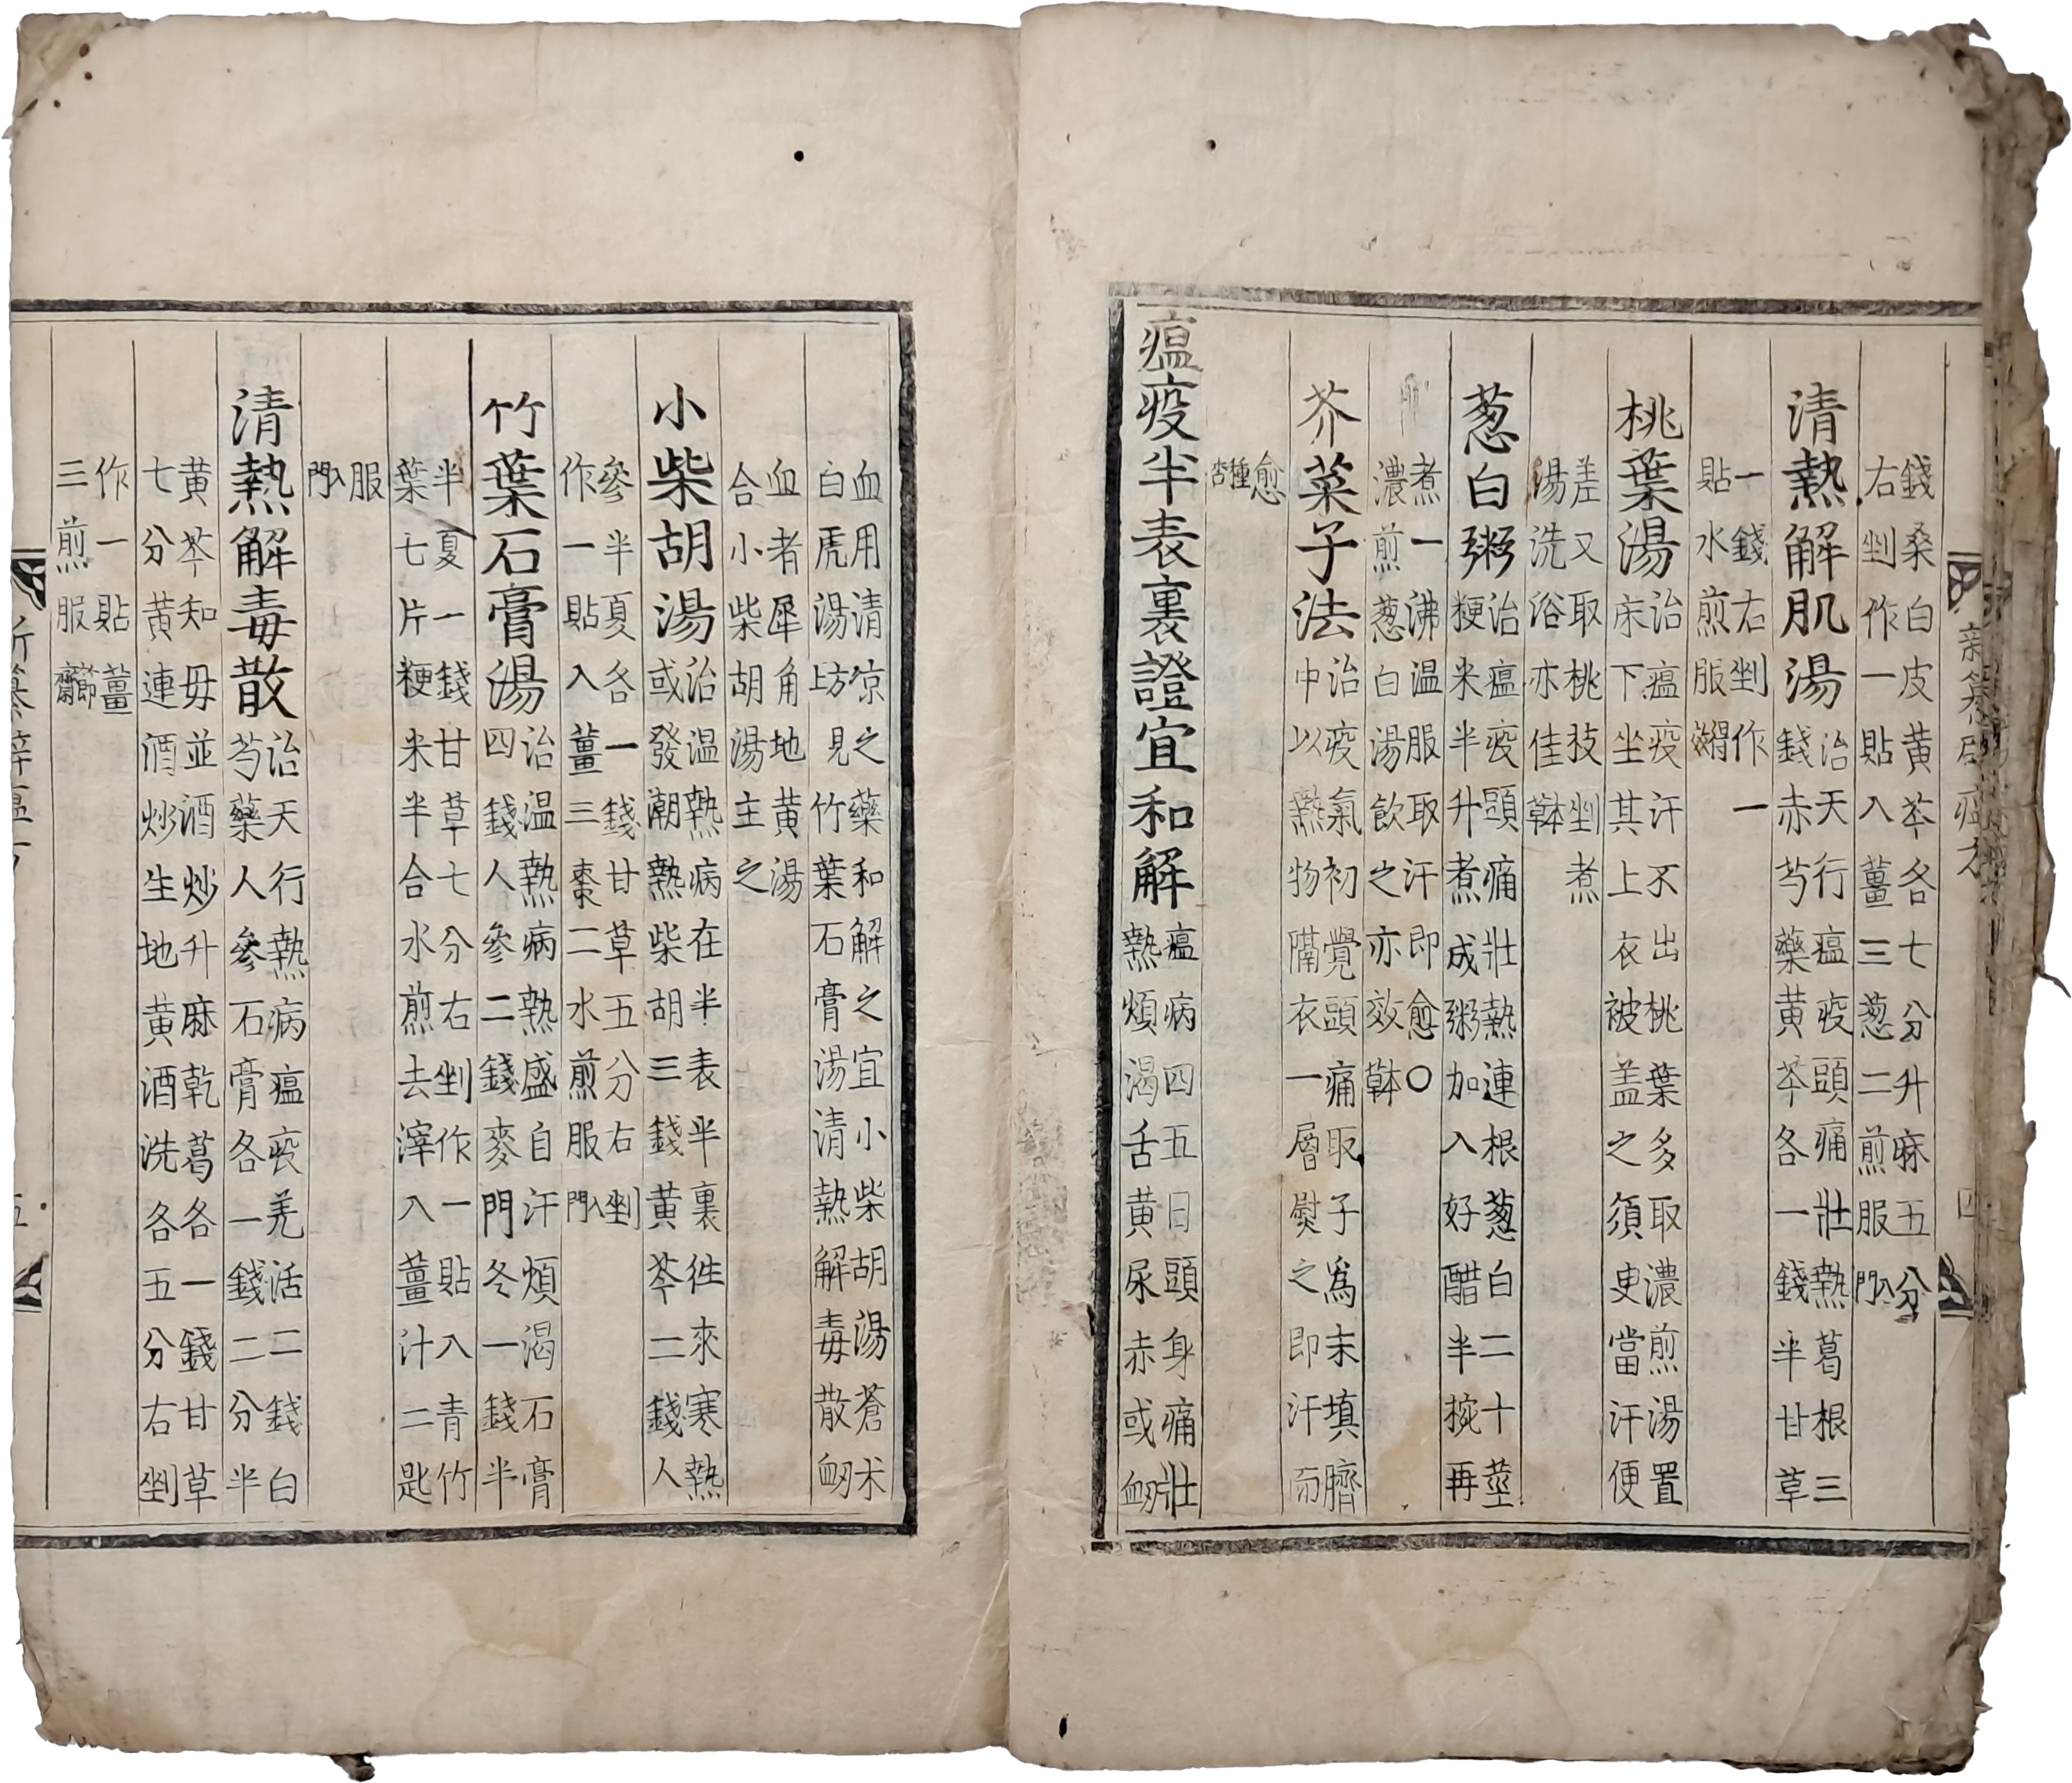 新纂辟瘟方
四
錢桑白皮黄芩各七分升麻五分
右剉作一貼入薑三葱二煎服入門
清熱解肌湯
治天行瘟疫頭痛壯熱葛根三
錢赤芍藥黄芩各一錢半甘草
一錢右剉作一
貼水煎服得效
桃葉湯
治瘟疫汗不出桃葉多取濃煎湯置
床下坐其上衣被盖之須臾當汗便
差又取桃枝剉煮
湯洗浴亦佳本草
葱白粥
治瘟疫頭痛壯熱連根葱白二十莖
粳米半升煮成粥加入好醋半椀再
煮一沸温服取汗即愈○
濃煎葱白湯飲之亦效本草
芥菜子法
治疫氣初覺頭痛取子爲末填臍
中以熱物隔衣一層熨之即汗而
愈種杏
瘟疫半表裏證宜和解
瘟病四五日頭身痛壯
熱煩渴舌黄尿赤或衄
血用清凉之藥和解之宜小柴胡湯蒼朮
白虎湯方見上竹葉石膏湯清熱解毒散衄
血者犀角地黄湯
合小柴胡湯主之
小柴胡湯
治温熱病在半表半裏徃來寒熱
或發潮熱柴胡三錢黄芩二錢人
參半夏各一錢甘草五分右剉
作一貼入薑三棗二水煎服入門
竹葉石膏湯
治温熱病熱盛自汗煩渴石膏
四錢人參二錢麥門冬一錢半
半夏一錢甘草七分右剉作一貼入青竹
葉七片粳米半合水煎去滓入薑汁二匙
服入門
清熱解毒散
治天行熱病瘟疫羌活二錢白
芍藥人參石膏各一錢二分半
黄芩知母並酒炒升麻乾葛各一錢甘草
七分黄連酒炒生地黄酒洗各五分右剉
作一貼薑
三煎服節齋
新纂辟瘟方
五